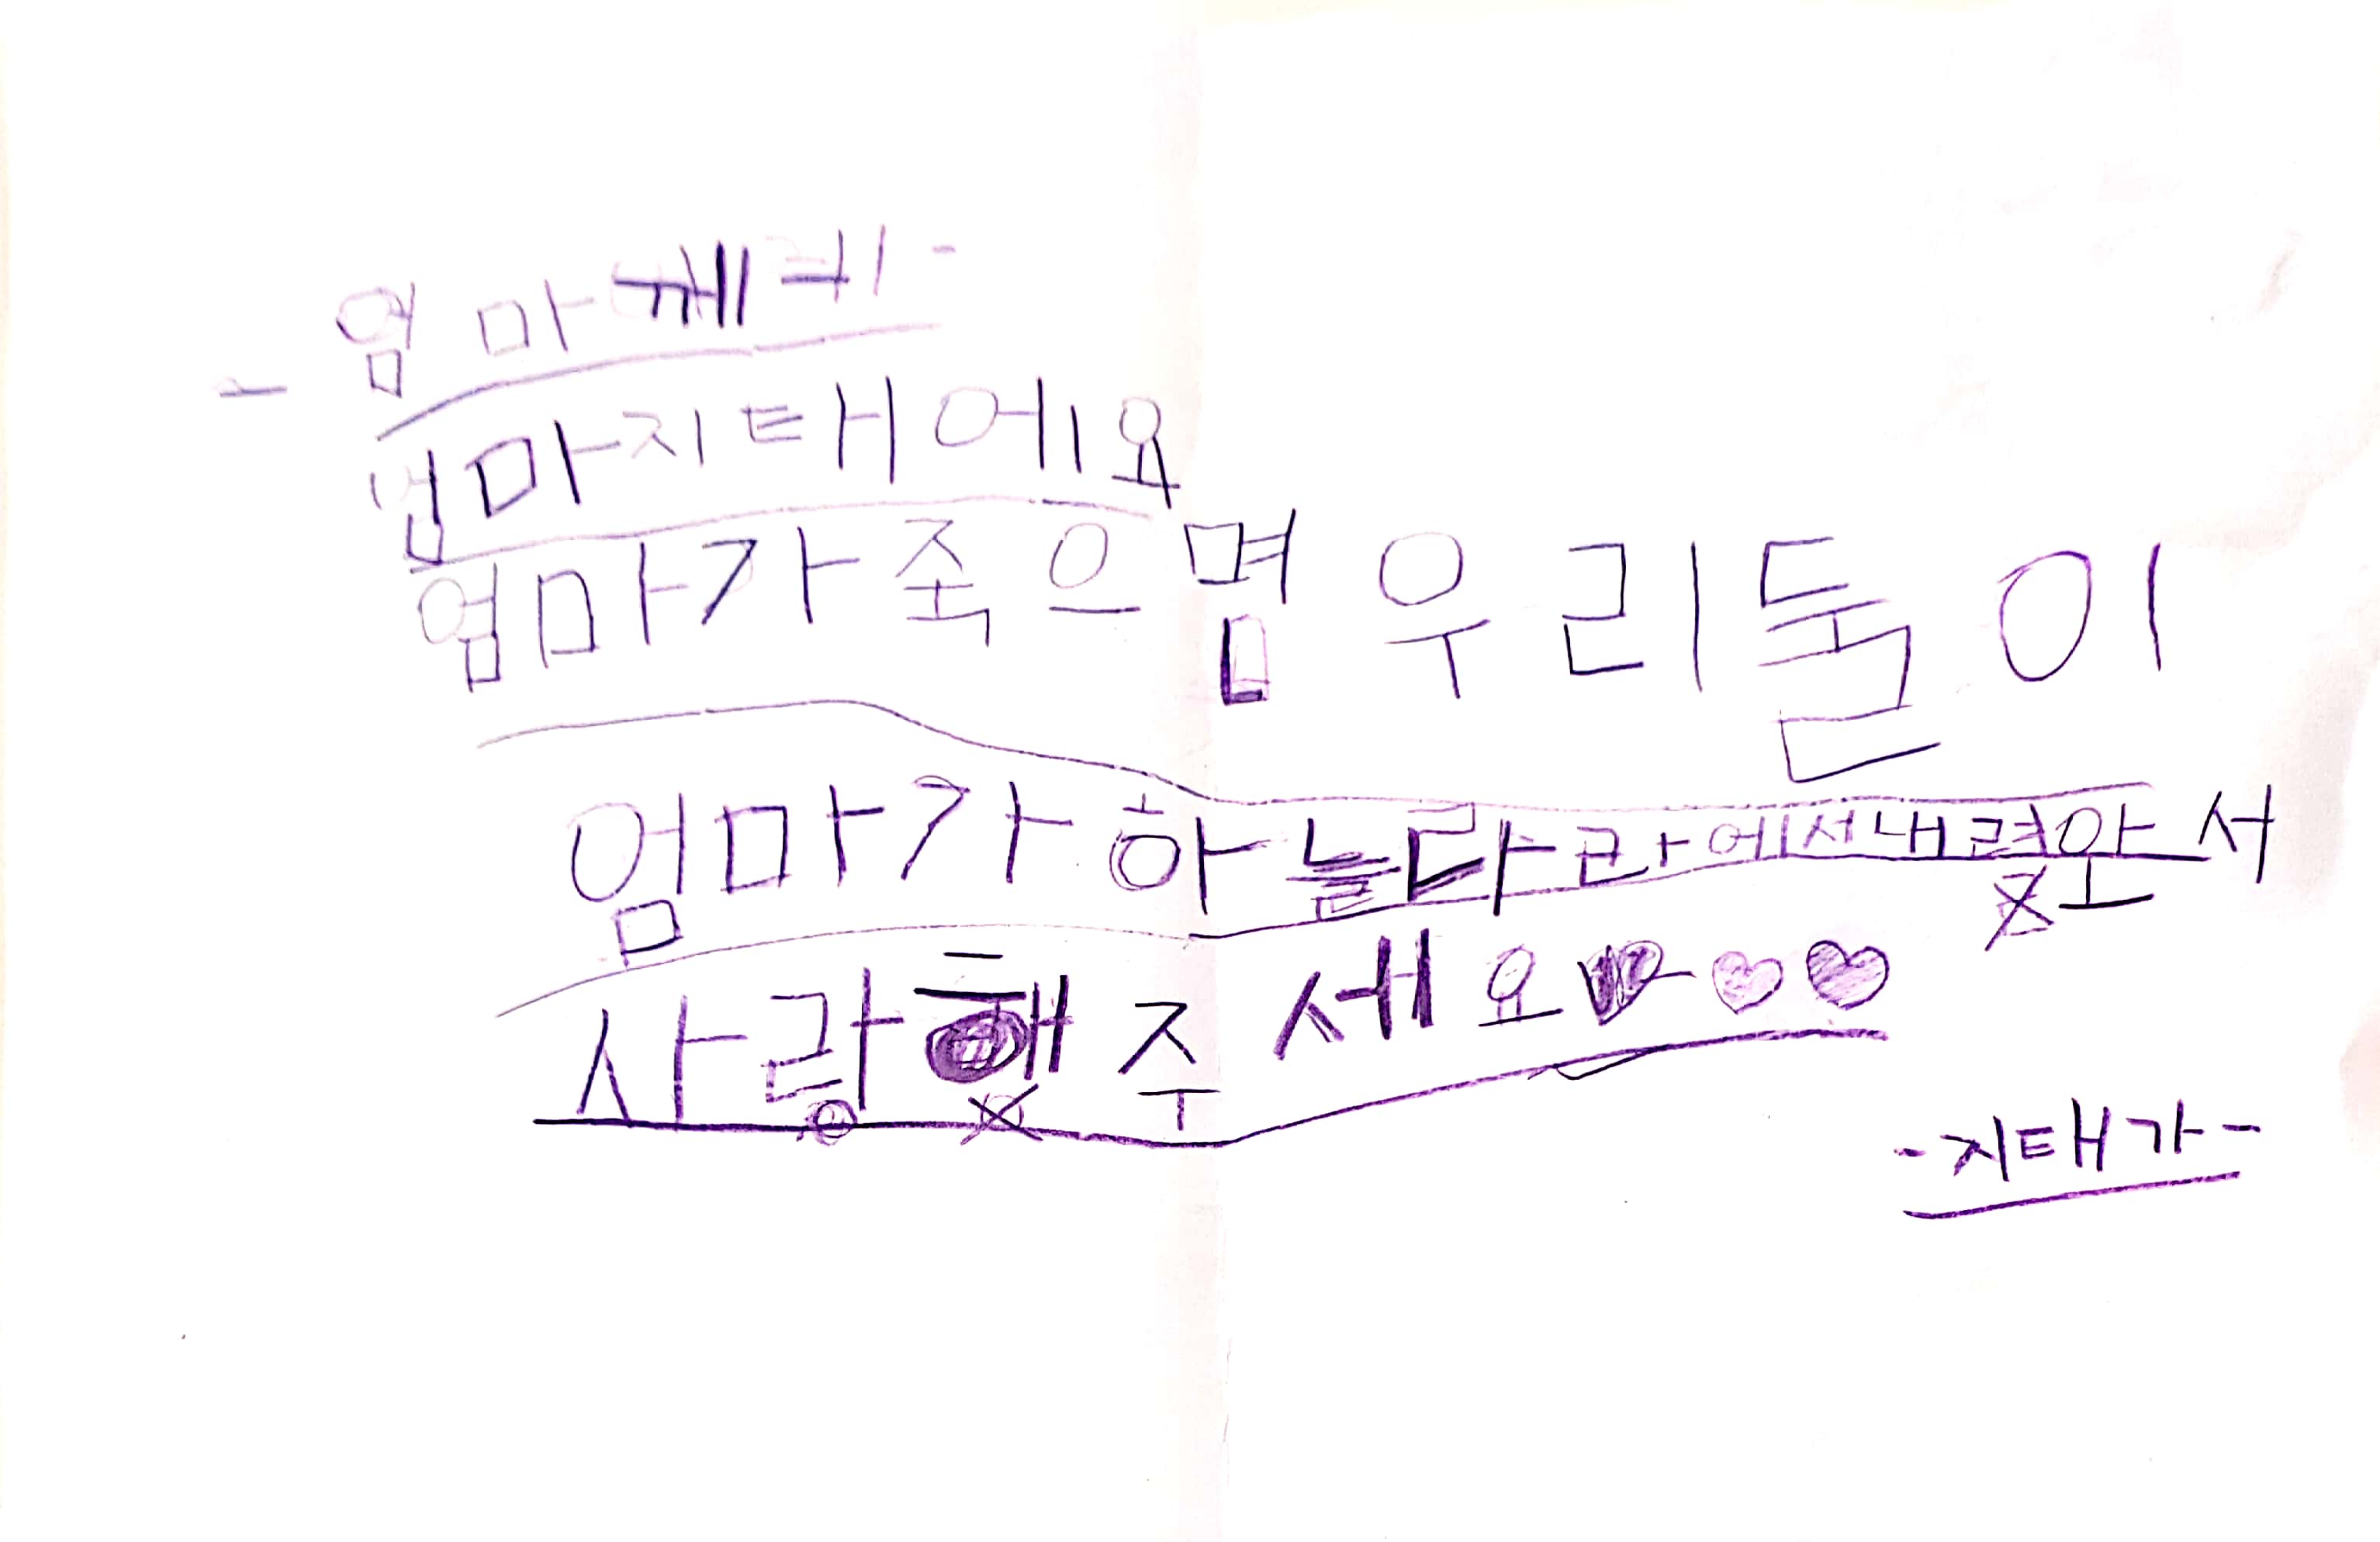 - 엄마께 -
엄마지태에요
엄마가 죽으몀 우리둘이
엄마가 하늘라라에서내려와서
사랑해주세요♥♥♥
-지태가-